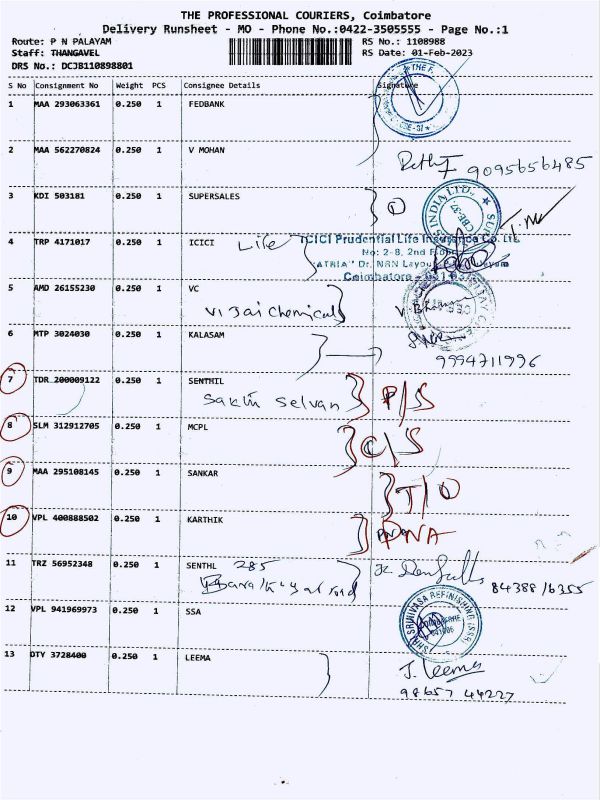 THE PROFESSIONAL COURIERS, Coimbatore
Delivery Runsheet - MO - Phone No.:0422-3505555 - Page No.:1
Route: P N PALAYAM
RS No.: 1108988
Staff: THANGAVEL
RS Date: 01-Feb-2023
DRS No.: DCJB110898801
S No Consignment No Weight PCS Consignee Details Signature
1 MAA 293063361 0.250 1 FEDBANK
THE P.
CBE-37
2 MAA 562270824 0.250 1 V MOHAN
9095656485
3 KDI 503181 0.250 1 SUPERSALES
INDIA LTD.
CBE-37
4 TRP 4171017 0.250 1 ICICI Life
ICICI Prudential Life Insurance Co. Ltd.
No: 2-8, 2nd Floor
"ATRIA" Dr. NRN Layout
Coimbatore - 641 037
5 AMD 26155230 0.250 1 VC
Vijai Chemicals
6 MTP 3024030 0.250 1 KALASAM
9994711996
7 TDR 200009122 0.250 1 SENTHIL
Sakthi Selvan P/S
8 SLM 312912705 0.250 1 MCPL
C/S
9 MAA 295108145 0.250 1 SANKAR
T/O
10 VPL 400888502 0.250 1 KARTHIK
PNA
11 TRZ 56952348 0.250 1 SENTHL 285
84388 16355
12 VPL 941969973 0.250 1 SSA
SHRI SRINIVASA REFINISHING
13 DTY 3728400 0.250 1 LEEMA
J. Leema
98657 44227